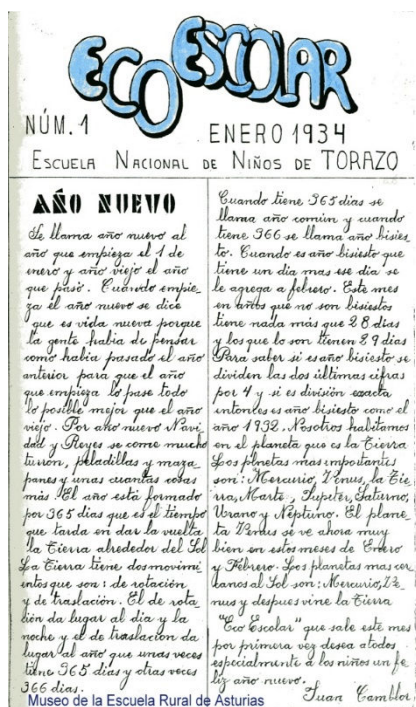 ECO ESCOLAR
NÚM. 1
ENERO 1934
ESCUELA NACIONAL DE NIÑOS DE TORAZO
AÑO NUEVO
Se llama año nuevo al
año que empieza el 1 de
enero y año viejo el año
que pasó. Cuando empie_
za el año nuevo se dice
que es vida nueva porque
la gente habia de pensar
como habia pasado el año
anterior para que el año
que empieza lo pase todo
lo posible mejor que el año
viejo. Por año nuevo Navi_
dad y Reyes se come mucho
turron, peladillas y maza_
panes y unas cuantas cosas
más. El año está formado
por 365 dias que es el tiempo
que tarda en dar la vuelta
la Tierra alrededor del Sol
La Tierra tiene dos movimi_
entos que son: de rotación
y de traslación. El de rota_
ción da lugar al dia y la
noche y el de traslacion da
lugar al año que unas veces
tiene 365 dias y otras veces
366 dias.
Cuando tiene 365 dias se
llama año común y cuando
tiene 366 se llama año bisies_
to. Cuando es año bisiesto que
tiene un dia mas ese dia se
le agrega a febrero. Este mes
en años que no son bisiestos
tiene nada más que 28 dias
y los que lo son tienen 29 dias
Para saber si es año bisiesto se
dividen las dos últimas cifras
por 4 y si es división exacta
entonces es año bisiesto como el
año 1932. Nosotros habitamos
en el planeta que es la Tierra
Los plnetas mas importantes
son: Mercurio, Venus, la Tie_
rra, Marte, Jupiter, Saturno,
Urano y Neptuno. El plane_
ta Venus se ve ahora muy
bien en estos meses de Enero
y Febrero. Los planetas mas cer
canos al Sol son: Mercurio, Ve_
nus y despues vine la Tierra
"Eco Escolar" que sale este mes
por primera vez desea a todos
especialmente a los niños un fe
liz año nuevo.
Juan Camblor
Museo de la Escuela Rural de Asturias